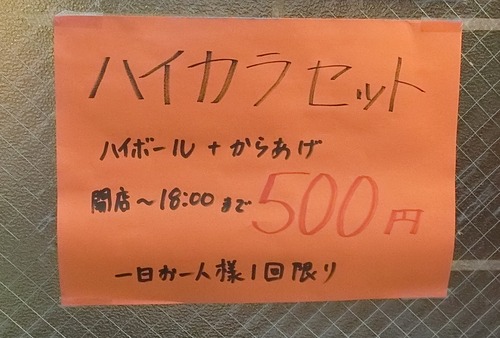 ハイカラセット
ハイボール + からあげ
開店～18:00まで 500円
一日お一人様1回限り